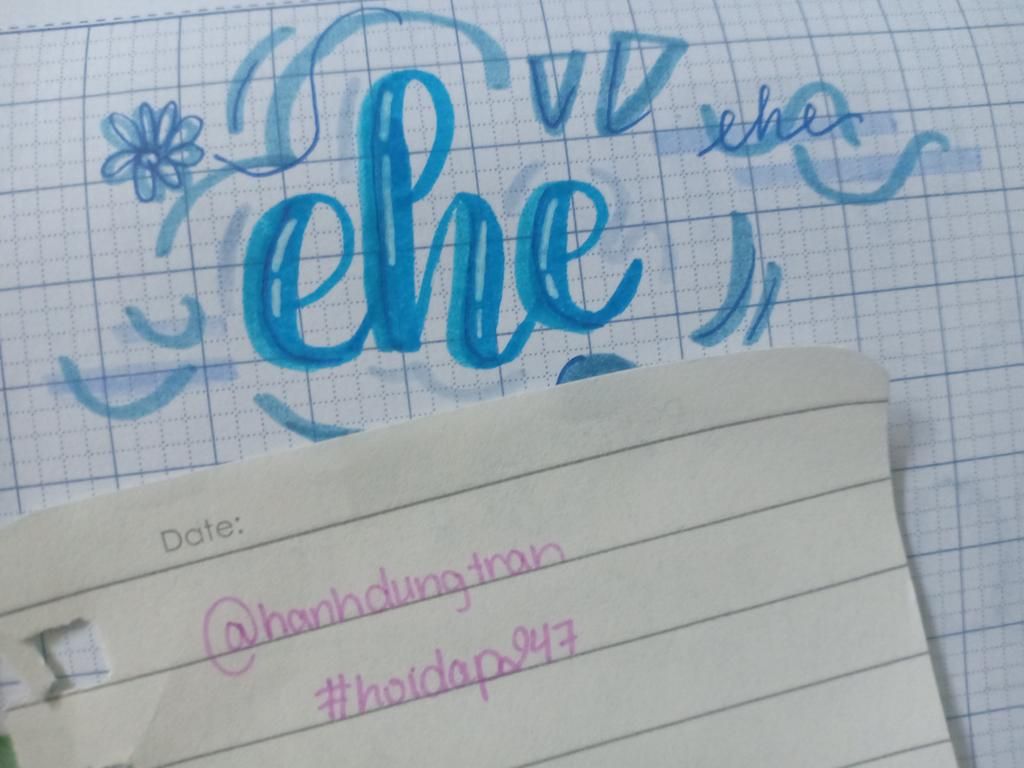 ehe
ehe
Date:
@hanhdungtran
#hoidap247